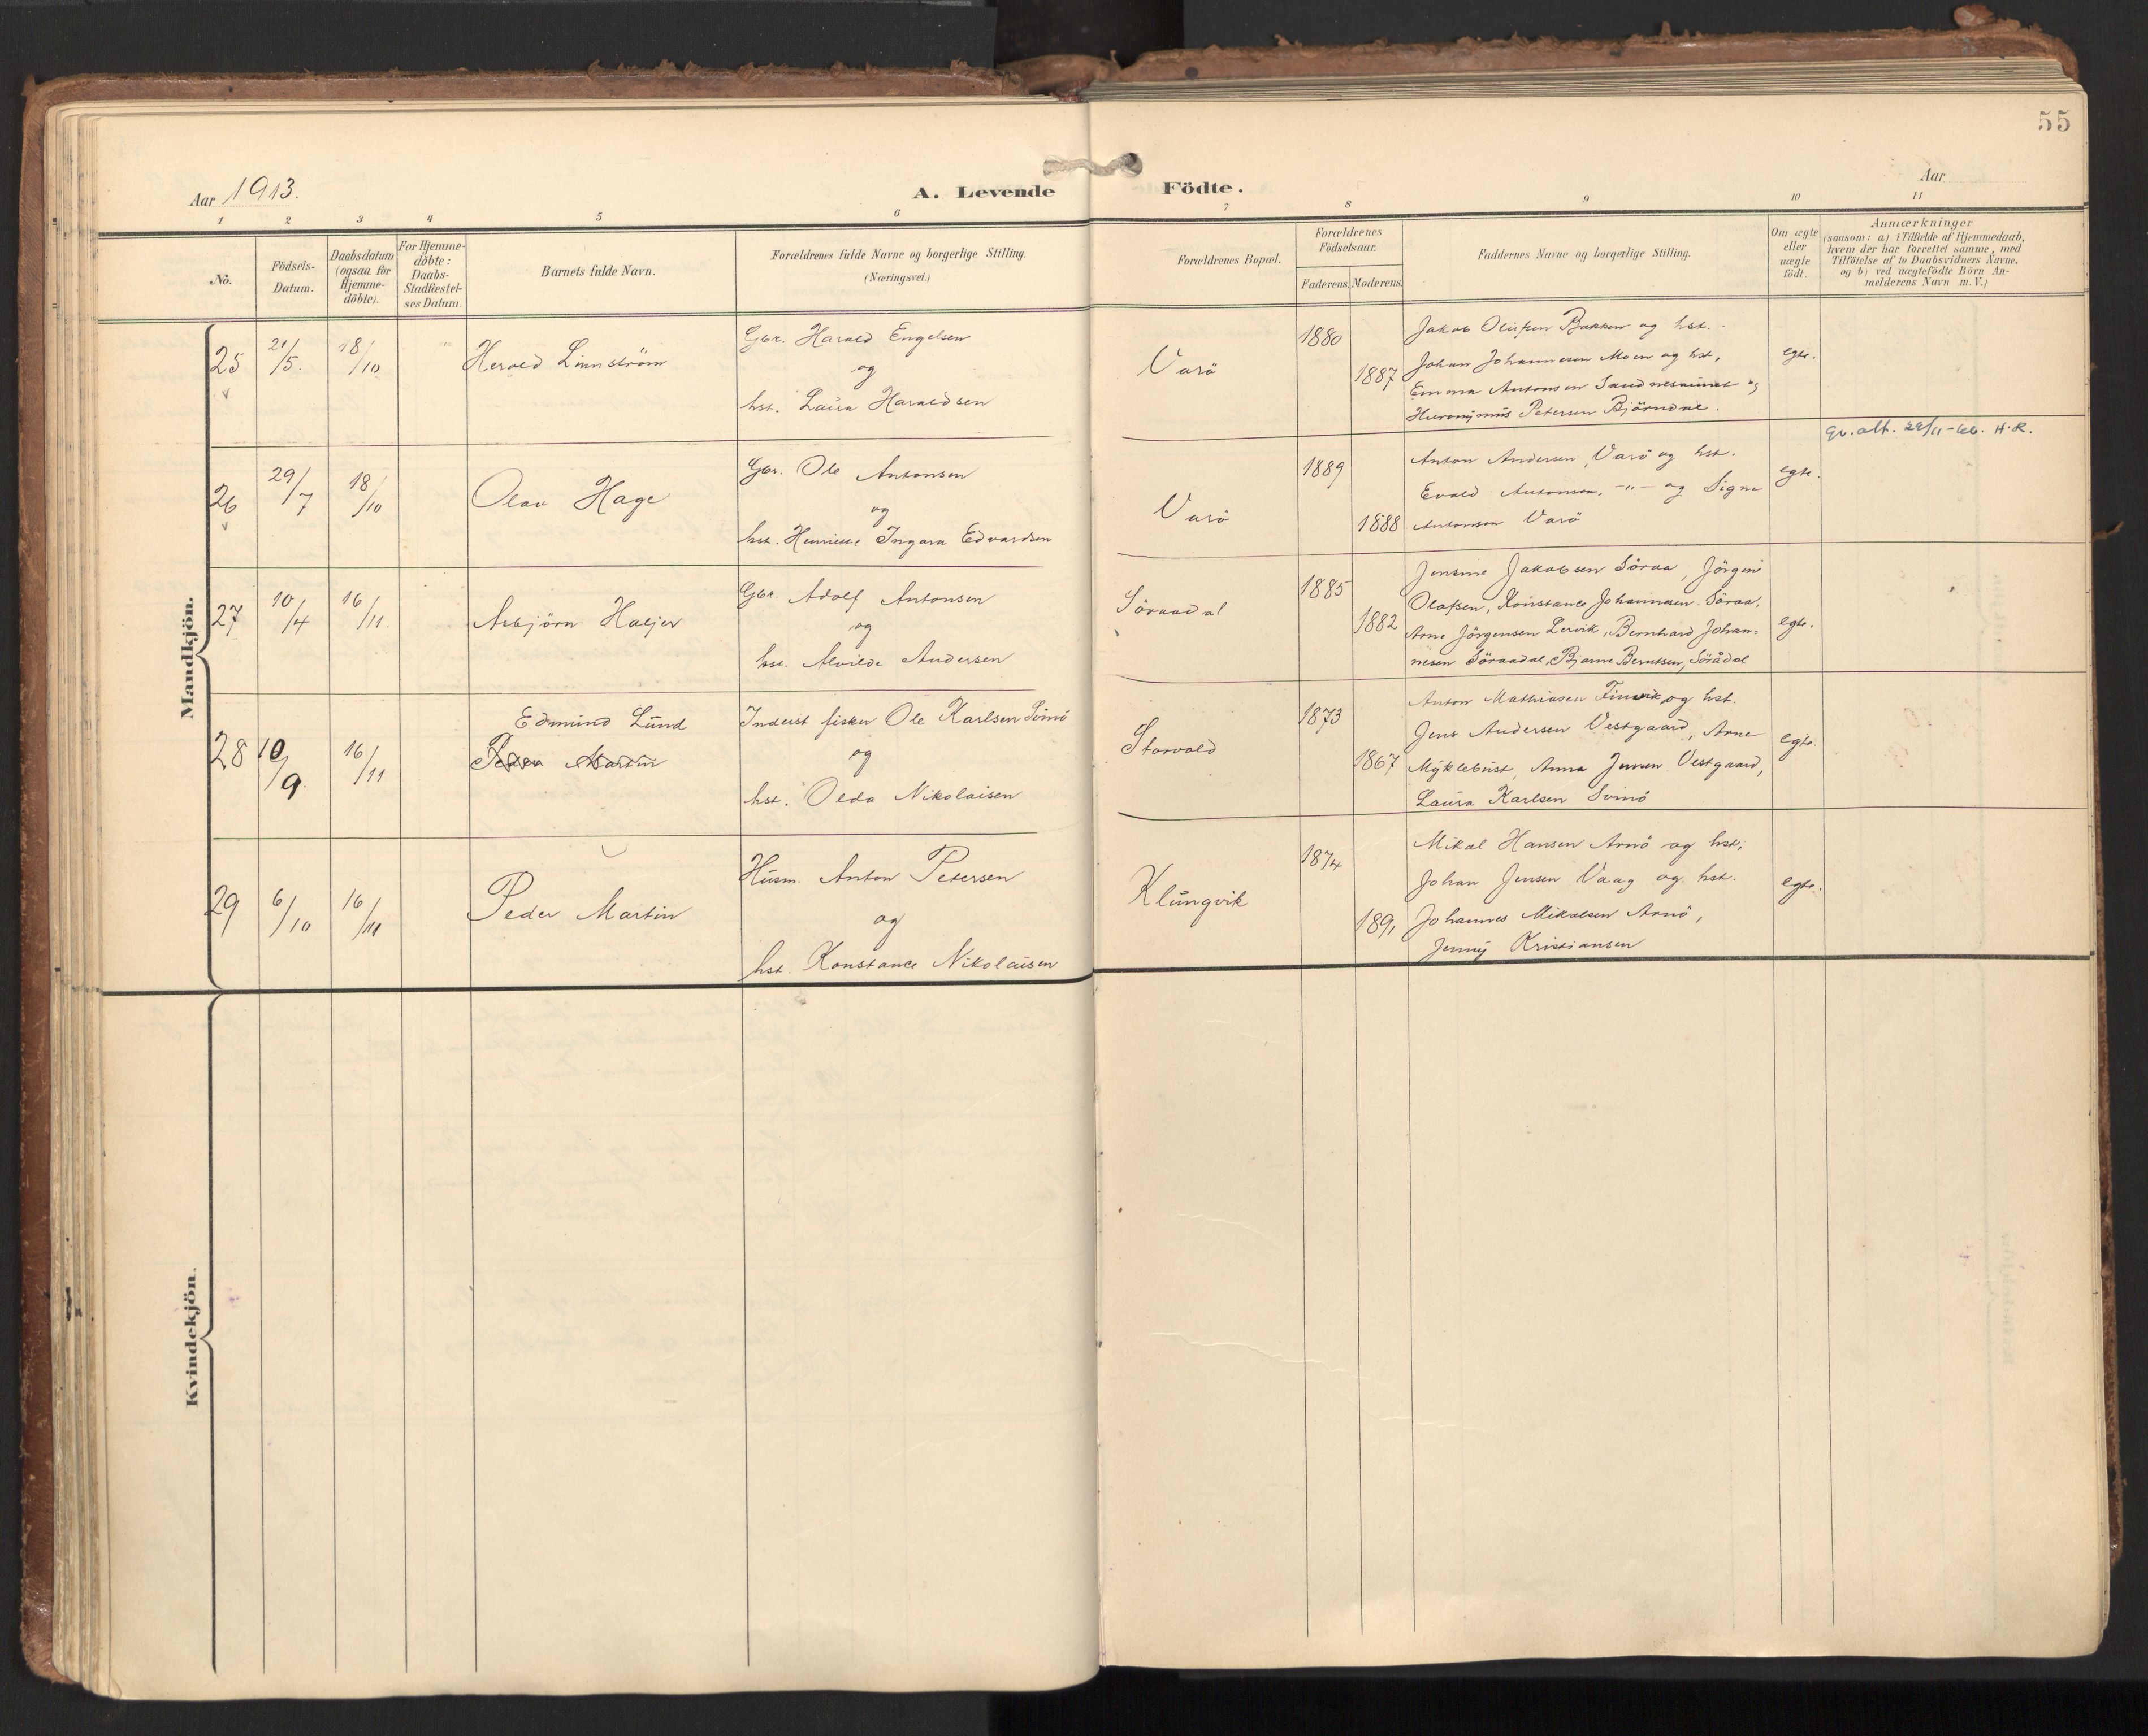 55
Aar 1913.
A. Levende Födte.
Aar
1 2 3 4 5 6 7 8 9 10 11
No.
Födsels-
Datum.
Daabsdatum
(ogsaa for
Hjemme-
döbte).
For Hjemme-
döbte:
Daabs-
Stadfæstel-
ses Datum.
Barnets fulde Navn.
Forældrenes fulde Navne og borgerlige Stilling.
(Næringsvei.)
Forældrenes Bopæl.
Forældrenes
Födselsaar.
Faderens. Moderens.
Faddernes Navne og borgerlige Stilling.
Om ægte
eller
uægte
födt.
Anmærkninger
(saasom: a) i Tilfælde af Hjemmedaab,
hvem der har forrettet samme, med
Tilföielse af to Daabsvidners Navne,
og b) ved uægtefödte Börn An-
melderens Navn m. V.)
Mandkjön.
25
21/5.
18/10
Herold Linnström
Gbr. Harald Engelsen
og
hst. Laura Haraldsen
Varö
1880
1887
Jakob Olufsen Bakken og hst.
Johan Johannesen Moen og hst,
Emma Antonsen
Hieronymus Petersen
egte.
26
29/7
18/10
Olav Hage
Gbr. Ole Antonsen
og
hst. Henriette Ingara Edvardsen
Varö
1889
1888
Anton Andersen, Varö og hst.
Evald Antonsen, -"- og Signe
Antonsen Varö
egte.
29/11-66. H.R.
27
10/4
16/11
Asbjörn
Gbr. Adolf Antonsen
og
hst. Alvilde Andersen
Söraadal
1885
1882
Jensine Jakobsen Söraa, Jörgine
Olafsen, Konstance Johannesen Söraa,
Arne Jörgensen Lervik, Bernhard Johan=
nesen Söraadal, Bjarne Berntsen, Sörådal
egte.
28
10/9
16/11
Edmund Lund
Peder Martin
Inderst fisker Ole Karlsen Svinö
og
hst. Olda Nikolaisen
Storvold
1873
1867
Anton Mathiasen Finvik og hst.
Jens Andersen Vestgaard, Arne
Myklebust, Anna Jensen Vestgaard,
Laura Karlsen Svinö
egte.
29
6/10
16/11
Peder Martin
Husm. Anton Petersen
og
hst. Konstance Nikolaisen
Klungvik
1874
1891
Mikal Hansen Arnö og hst;
Johan Jensen Vaag og hst.
Johannes Mikalsen Arnö,
Jenny Kristiansen
egte.
Kvindekjön.